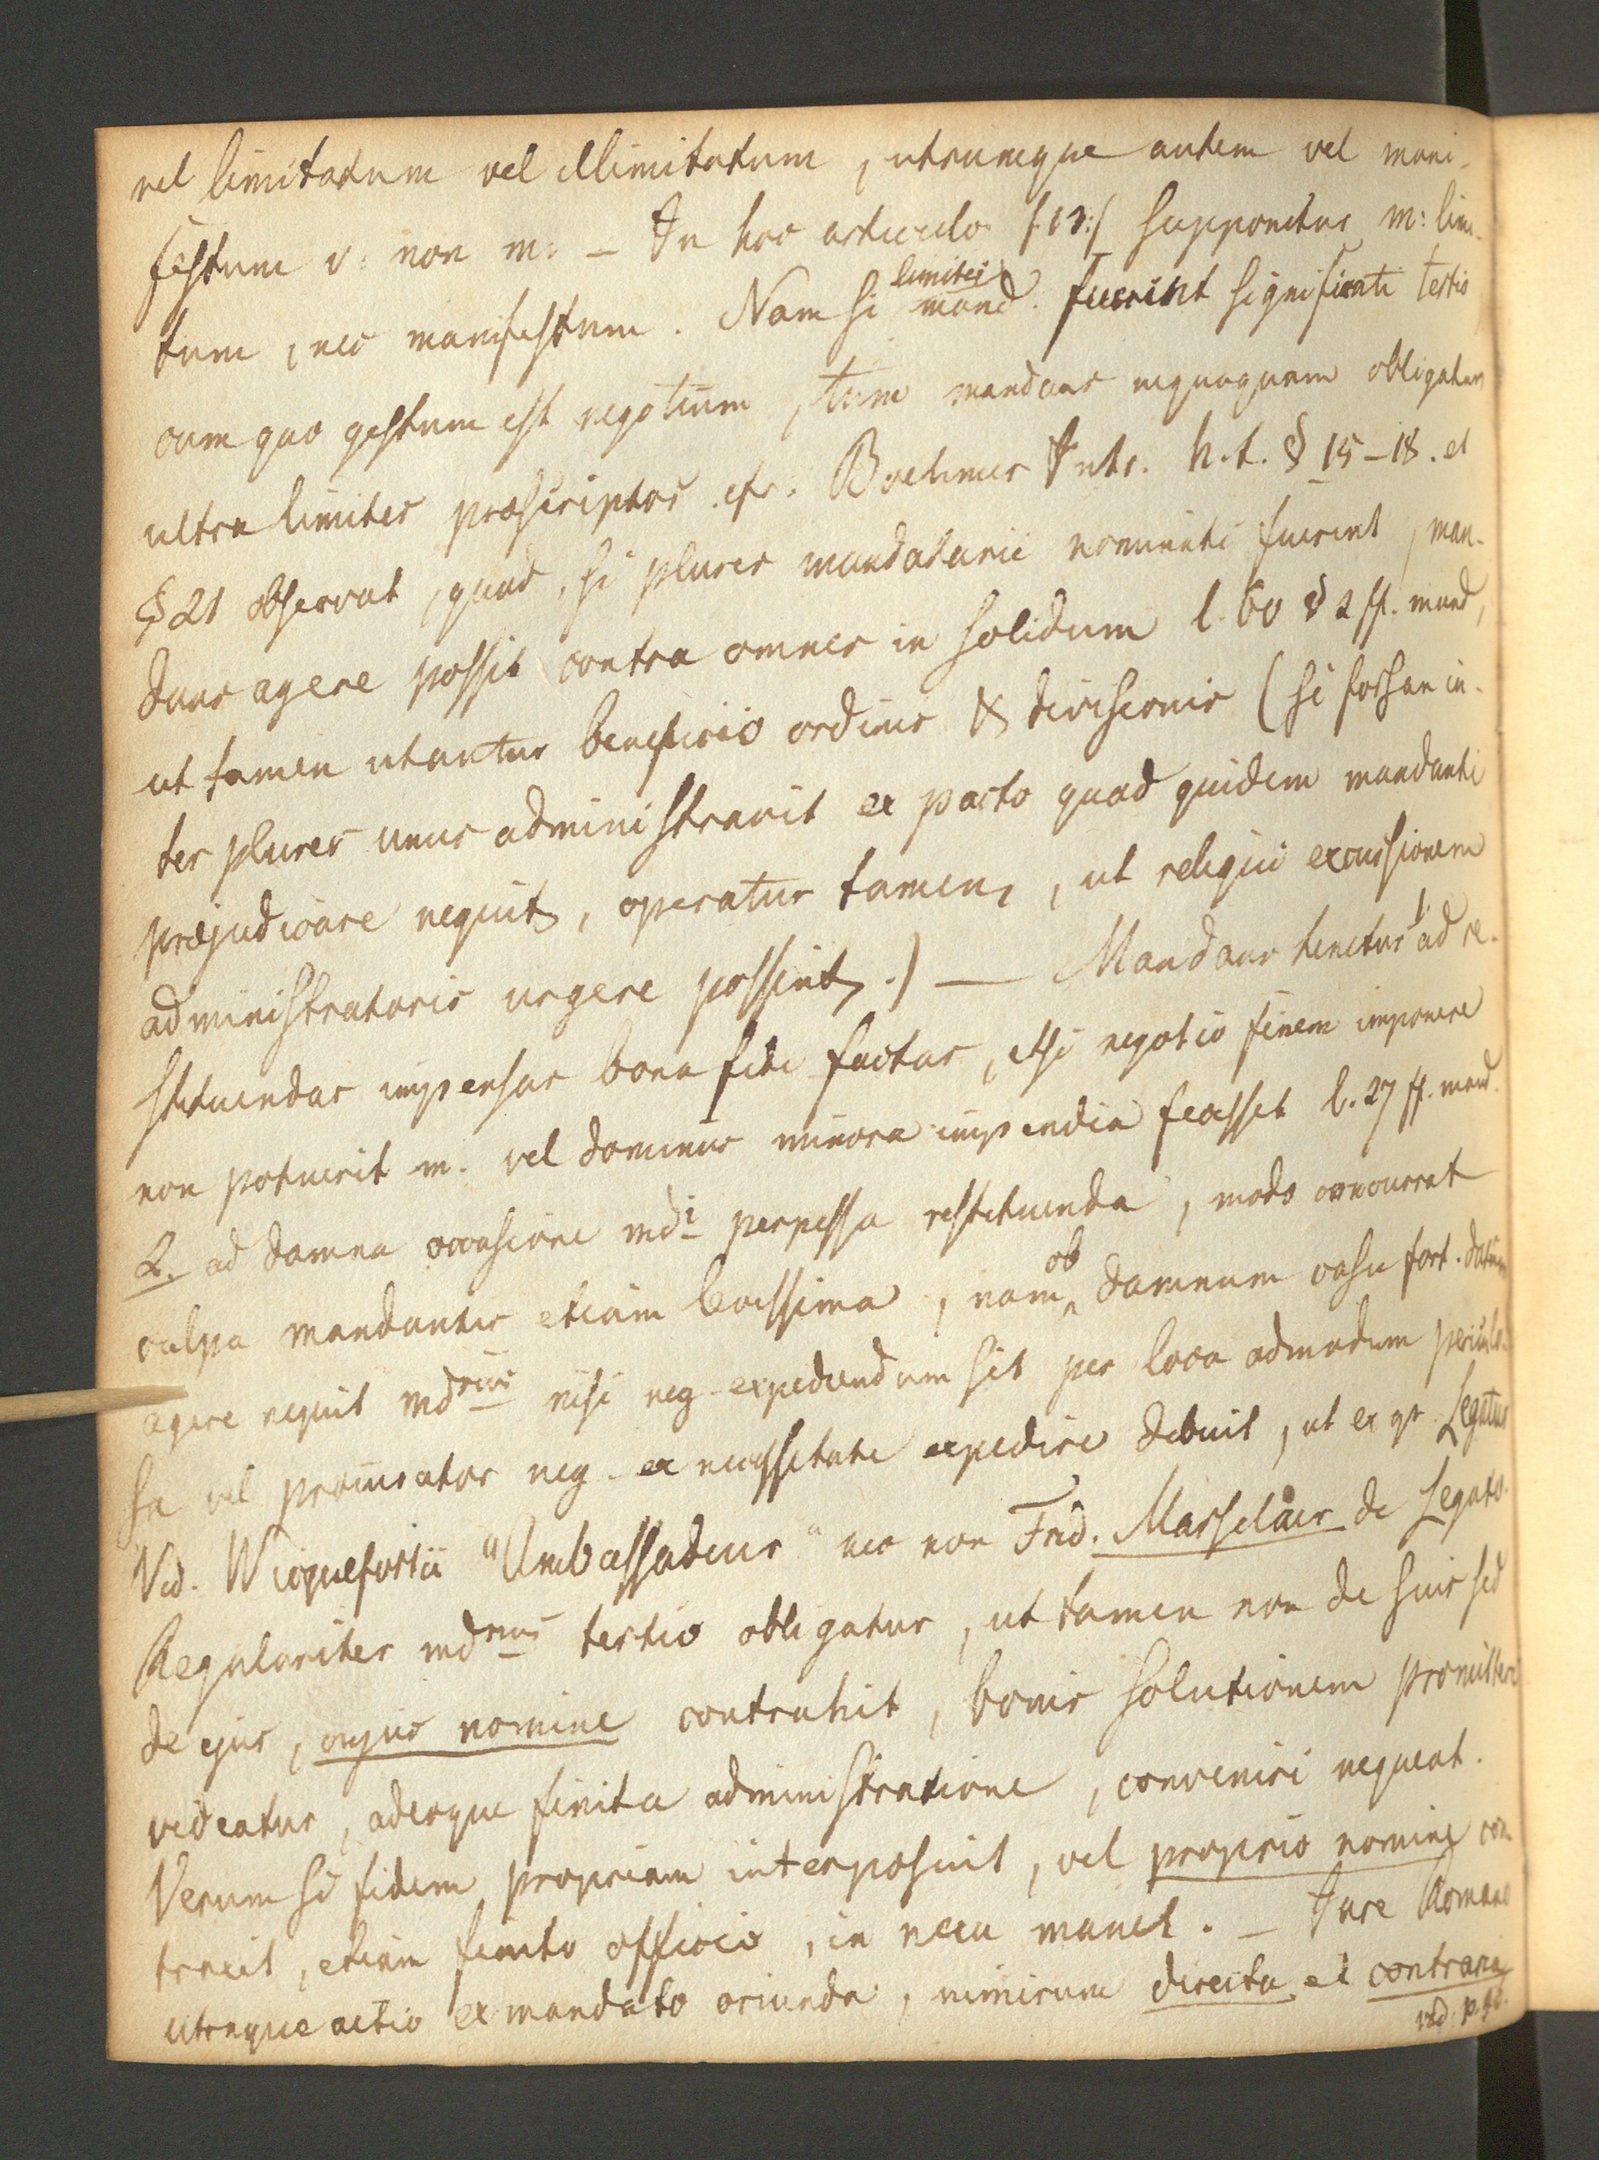 vel limitatum vel illimitatum, utrumque autem vel mani-
festum v: non m: – In hoc articulo /:13:/ supponitur m: limi-
tum, nec manifestum. Nam si limites mand. fuerint significati tertio
cum quo gestum est negotium, tum mandans nequaquam obligatur
ultra limites præscriptos. cfr. Boehmer Intr. h. t. § 15–18. et
§ 21 observat, quod, si plures mandatarii nominati fuerint, man-
dans agere possit contra omnes in solidum l. 60 § 2 ff. mand,
ut tamen utantur beneficio ordinis & divisionis (si forsan in-
ter plures unus administravit ex pacto quod quidem mandanti
præjudicare nequit, operatur tamen, ut reliqui excussionem
administratoris urgere possint.) — Mandans tenetur 1. ad re-
stituendas impensas bona fide factas, etsi negotio finem imponere
non potuerit m. vel dominus minora impendia fecisset l. 27 ff. mand.
2. ad damna occasione mdi perpessa restituenda, modo concurrat
culpa mandantis etiam levissima, nam ob damnum casu fort. datum
agere nequit mdrius nisi neg. expediendum sit per loca admodum periculo-
sa vel procurator neg. ex necessitate expedire debuit, ut ex gr. Legatus
Vid. Wicquefortii "Ambassadeur" nec non Frid. Marselaer de Legato.
Regulariter mdrius tertio obligatur, ut tamen non de suis sed
de ejus, cujus nomine contrahit, bonis solutionem promittere
videatur, adeoque finita administratione, conveniri nequeat.
Verum si fidem propriam interposuit, vel proprio nomine con-
traxit, etiam finito officio, in nexu manet. – Jure Romano
utraque actio ex mandato oriunda, nimirum directa et contraria
vid. p.